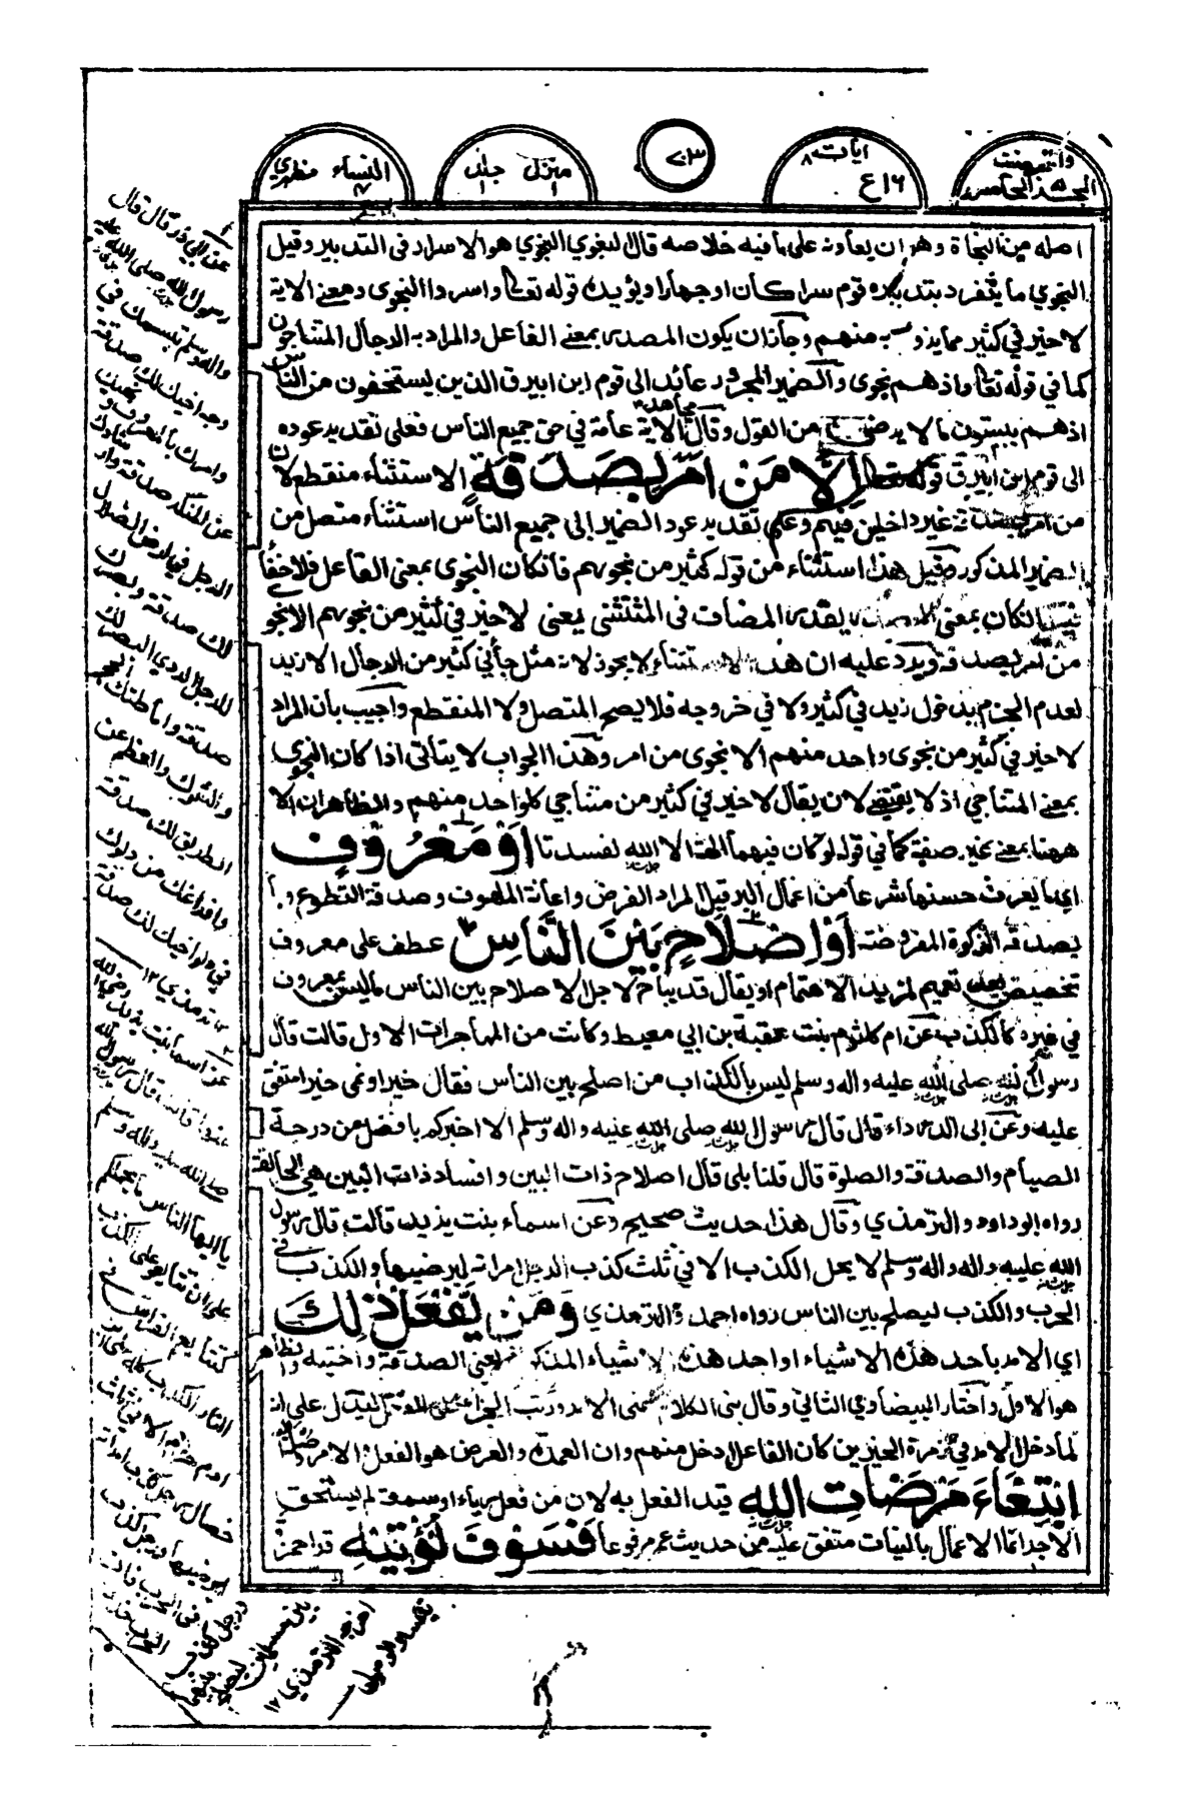 والمحصنت
الجزء الخامس
ايات ٨
١٦ع
٧٠٣
منزل ١ جلد ١
النساء مظهري
اصله من النجاة وهو ان يعاونه على ما فيه خلاصه قال البغوي النجوي هو الاسرار في التدبير وقيل
النجوي ما يتفرد بتدبيره قوم سرا كان او جهارا ويؤيده قوله تعالى واسروا النجوى ومعنى الاية
لا خير في كثير مما يدور بينهم وجاز ان يكون المصدر بمعنى الفاعل والمراد به الرجال المتناجون
كما في قوله تعالى واذ هم نجوى والضمير المجرور عائد الى قوم ابن ابيرق الذين يستخفون من الناس
اذ هم يبيتون ما لا يرضى من القول وقال مجاهد الاية عامة في حق جميع الناس فعلى تقدير عوده
الى قوم ابن ابيرق قوله تعالى اِلَّا مَنْ اَمَرَ بِصَدَقَةٍ الاستثناء منقطع لان
من امر بصدقة غير داخلين فيهم وعلى تقدير عود الضمير الى جميع الناس استثناء متصل من
الضمير المذكور وقيل هذا استثناء من قوله كثير من نجوىهم فان كان النجوى بمعنى الفاعل فلا خفاء
فيه وان كان بمعنى المصدر يقدر المضاف في المثتثنى يعنى لا خير في كثير من نجوىهم الا نجوى
من امر بصدقة ويرد عليه ان هذا الاستثناء لا يجوز لانه مثل جأني كثير من الرجال الا زيد
لعدم الجزم بدخول زيد في كثير ولا في خروجه فلا يصح المتصل ولا المنقطع واجيب بان المراد
لا خير في كثير من نجوى واحد منهم الا نجوى من امر وهذا الجواب لا يتأتى اذا كان النجوى
بمعنى المتناجي اذ لا يقتضي لان يقال لا خير في كثير من متناجي كل واحد منهم والظاهر ان الا
ههنا بمعنى غير صفة كما في قوله لو كان فيهما الهة الا الله لفسدتا اَوْ مَعْرُوْفٍ
اي ما يعرف حسنها شرعا من اعمال البر قيل المراد القرض واعانة الملهوف وصدقة التطوع و
بصدقة الزكوة المفروضة اَوْ اِصْلَاحٍ بَيْنَ النَّاسِ عطف على معروف
تخصيص بعد تعميم لمزيد الاهتمام او يقال قد يباح لاجل الاصلاح بين الناس ما ليس بمعروف
في غيره كالكذب عن ام كلثوم بنت عقبة بن ابي معيط وكانت من المهاجرات الاول قالت قال
رسول الله صلى الله عليه واله وسلم ليس بالكذاب من اصلح بين الناس فقال خيرا او نمى خيرا متفق
عليه وعن ابى الدرداء قال قال رسول الله صلى الله عليه واله وسلم الا اخبركم بافضل من درجة
الصيام والصدقة والصلوة قال قلنا بلى قال اصلاح ذات البين وافساد ذات البين هي الحالقة
رواه ابو داود والترمذي وقال هذا حديث صحيح وعن اسماء بنت يزيد قالت قال رسول
الله عليه واله واله وسلم لا يحل الكذب الا في ثلث كذب الرجل امراته ليرضيها والكذب في
الحرب والكذب ليصلح بين الناس رواه احمد والترمذي وَمَنْ يَّفْعَلْ ذٰلِكَ
اي الامر باحد هذه الاشياء او احد هذه الاشياء المذكورة يعني الصدقة واختيه والظاهر
هو الاول واختار البيضاوي الثاني وقال بنى الكلام على الامر ورتب الجزاء على الفعل ليدل على انه
لما دخل الامر في زمرة الخيرين كان الفاعل ادخل منهم وان العمدة والغرض هو الفعل والامر وصلة
ابْتِغَاءَ مَرْضَاتِ اللّٰهِ قيد الفعل به لان من فعل رياء او سمعة لم يستحق
الاجر انما الاعمال بالنيات متفق عليه من حديث عمر مرفوعا فَسَوْفَ نُؤْتِيْهِ قرا حمزة
عن ابي ذر قال قال
رسول الله صلى الله عليه
واله وسلم تبسمك في
وجه اخيك لك صدقة
وامرك بالمعروف ونهيك
عن المنكر صدقة وارشادك
الرجل في ارض الضلال
لك صدقة وبصرك
للرجل الردي البصر لك
صدقة واماطتك الحجر
والشوك والعظم عن
الطريق لك صدقة
وافراغك من دلوك
في دلو اخيك لك صدقة
ترمذي ١٢
عن اسماء بنت يزيد رضي الله
عنها قالت قال رسول الله
صلى الله عليه واله وسلم
يا ايها الناس ما يحملكم
على ان تتايعوا على الكذب
كتتايع الفراش في
النار الكذب كله على ابن
ادم حرام الا في ثلث
خصال رجل كذب امراته
ليرضيها ورجل كذب
في الحرب فان
الحرب خدعة
ورجل كذب
بين مسلمين ليصلح بينهما
اخرجه الترمذي ١٢